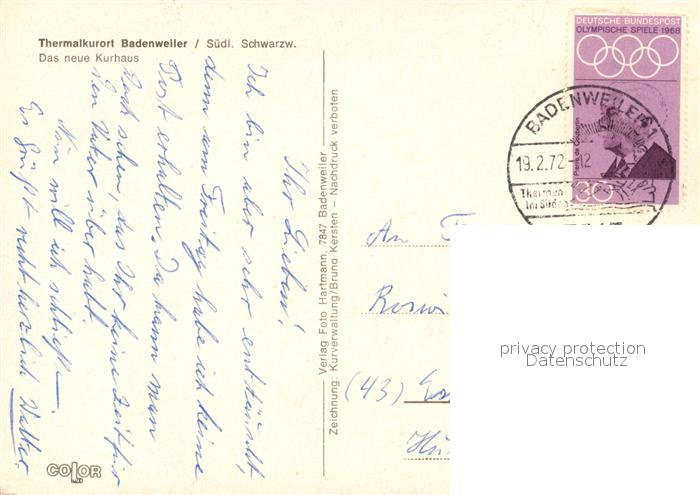 Thermalkurort Badenweiler / Südl. Schwarzw.
Das neue Kurhaus
Ihr Lieben!
Ich bin aber sehr enttäuscht,
denn am Freitag habe ich keine
Post erhalten. Da kann man
doch sehen, das Ihr keine Zeit für
den Vater über habt.
Nun will ich schließen.
Es grüßt recht herzlich Walter.
COLOR
Verlag Foto Hartmann, 7847 Badenweiler
Zeichnung: Kurverwaltung/Bruno Kersten – Nachdruck verboten
DEUTSCHE BUNDESPOST
OLYMPISCHE SPIELE 1968
Pierre de Coubertin
30
BADENWEILER 1
19.2.72-12
Thermen
im Süden
An
(43)
privacy protection
Datenschutz